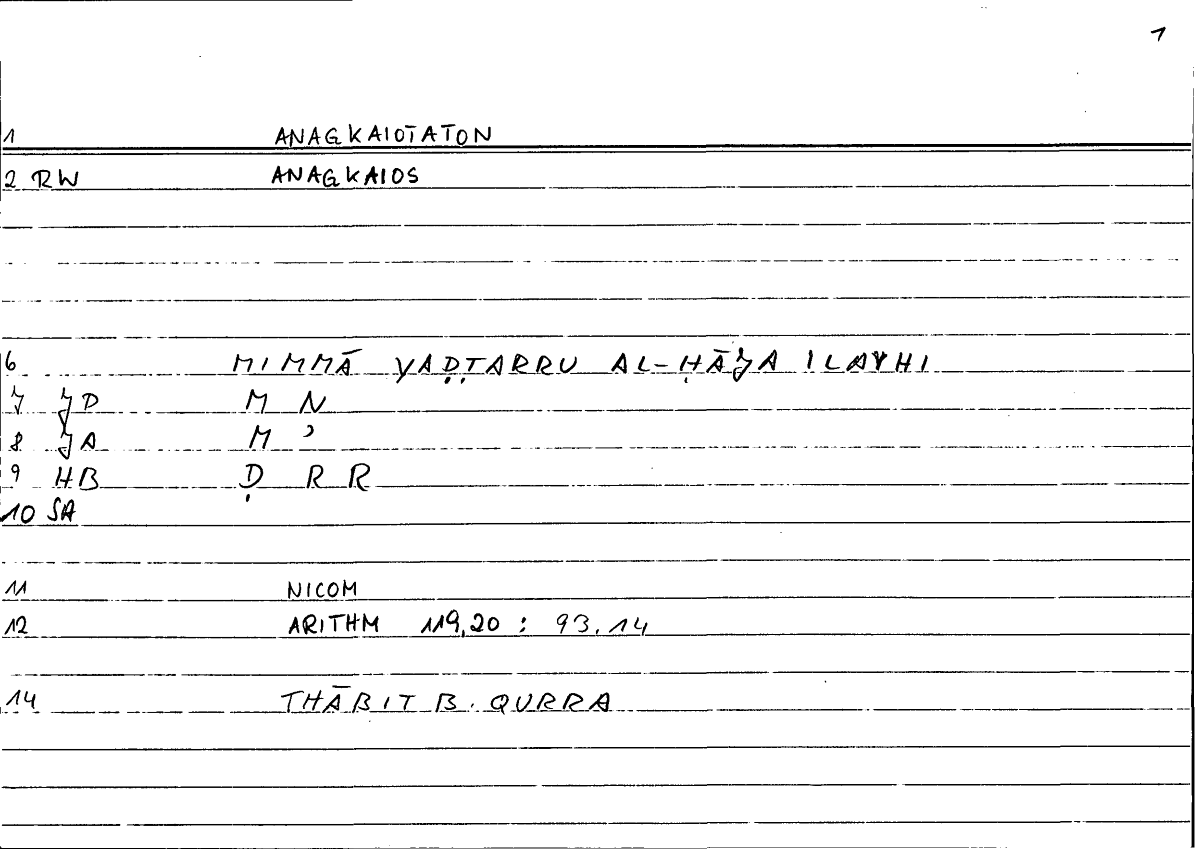 1
1 ANAGKAIOTATON
2 RW ANAGKAIOS
6 MIMMĀ YAḌṬARRU AL-ḤĀJA ILAYHI
7 JD M N
8 JA M ʾ
9 HB Ḍ R R
10 SA
11 NICOM
12 ARITHM 119,20 : 93,14
14 THĀBIT B. QURRA